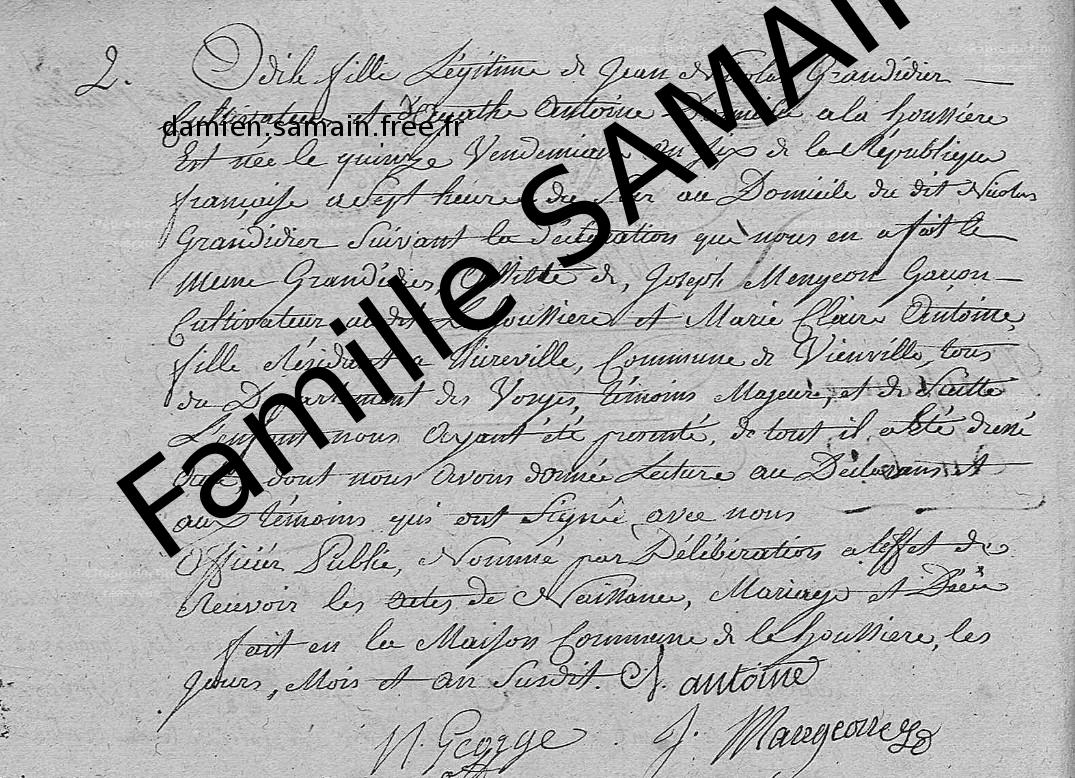 2. Odile fille Légitime de Jean Nicolas Grandidier
Cultivateur et Agathe Antoine Domicilié a la houssière
Est née le quinze Vendemiaire an six de la République
française a sept heures du soir au Domicile du dit Nicolas
Grandidier Suivant la déclaration que nous en a fait le
meme Grandidier, assisté de, Joseph Mengeon Garçon
Cultivateur audit La houssiere et Marie Claire Antoine,
fille résidant a Vienville, tous
du Département des Vosges, témoins Majeurs, et de Suitte
L'enfant nous Ayant été presenté, de tout il a été dressé
Acte dont nous avons donnée Lecture au Déclarans et
aux témoins qui ont Signée avec nous
Officier Public, Nommé par Délibération a l'effet de
Recevoir les actes de Naissance, Mariage et Décès
fait en la Maison Commune de la houssiere, les
jours, Mois et an Susdit. N. antoine
N. George J. Mangeon
Famille SAMAIN
damien.samain.free.fr